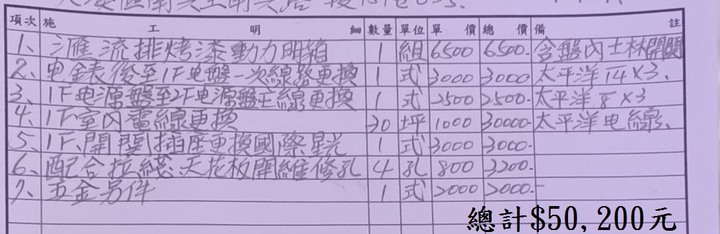 項次 施 工 明 細 數量 單位 單價 總價 備註
1、匯流排烤漆動力明箱 1 組 6500 6500- 含盤內士林開關
2、电錶後至1F电盤一次線路更換 1 式 3000 3000- 太平洋14×3、
3、1F电源盤至2F电源盤主線更換 1 式 2500 2500- 太平洋8×3
4、1F室內電線更換 30 坪 1000 30000- 太平洋电線、
5、1F、開関插座更換國際星光 1 式 3000 3000-
6、配合拉綫、天花板開維修孔 4 孔 800 3200-
7、五金另件 1 式 2000 2000-
總計$50,200元